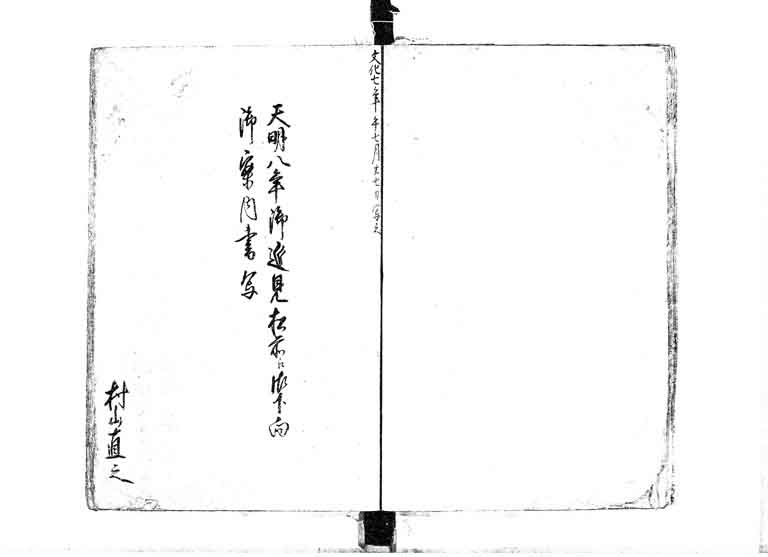 文化七年午七月廿七日写之
天明八年御巡見松前江御下向
御案内書写
村山直之